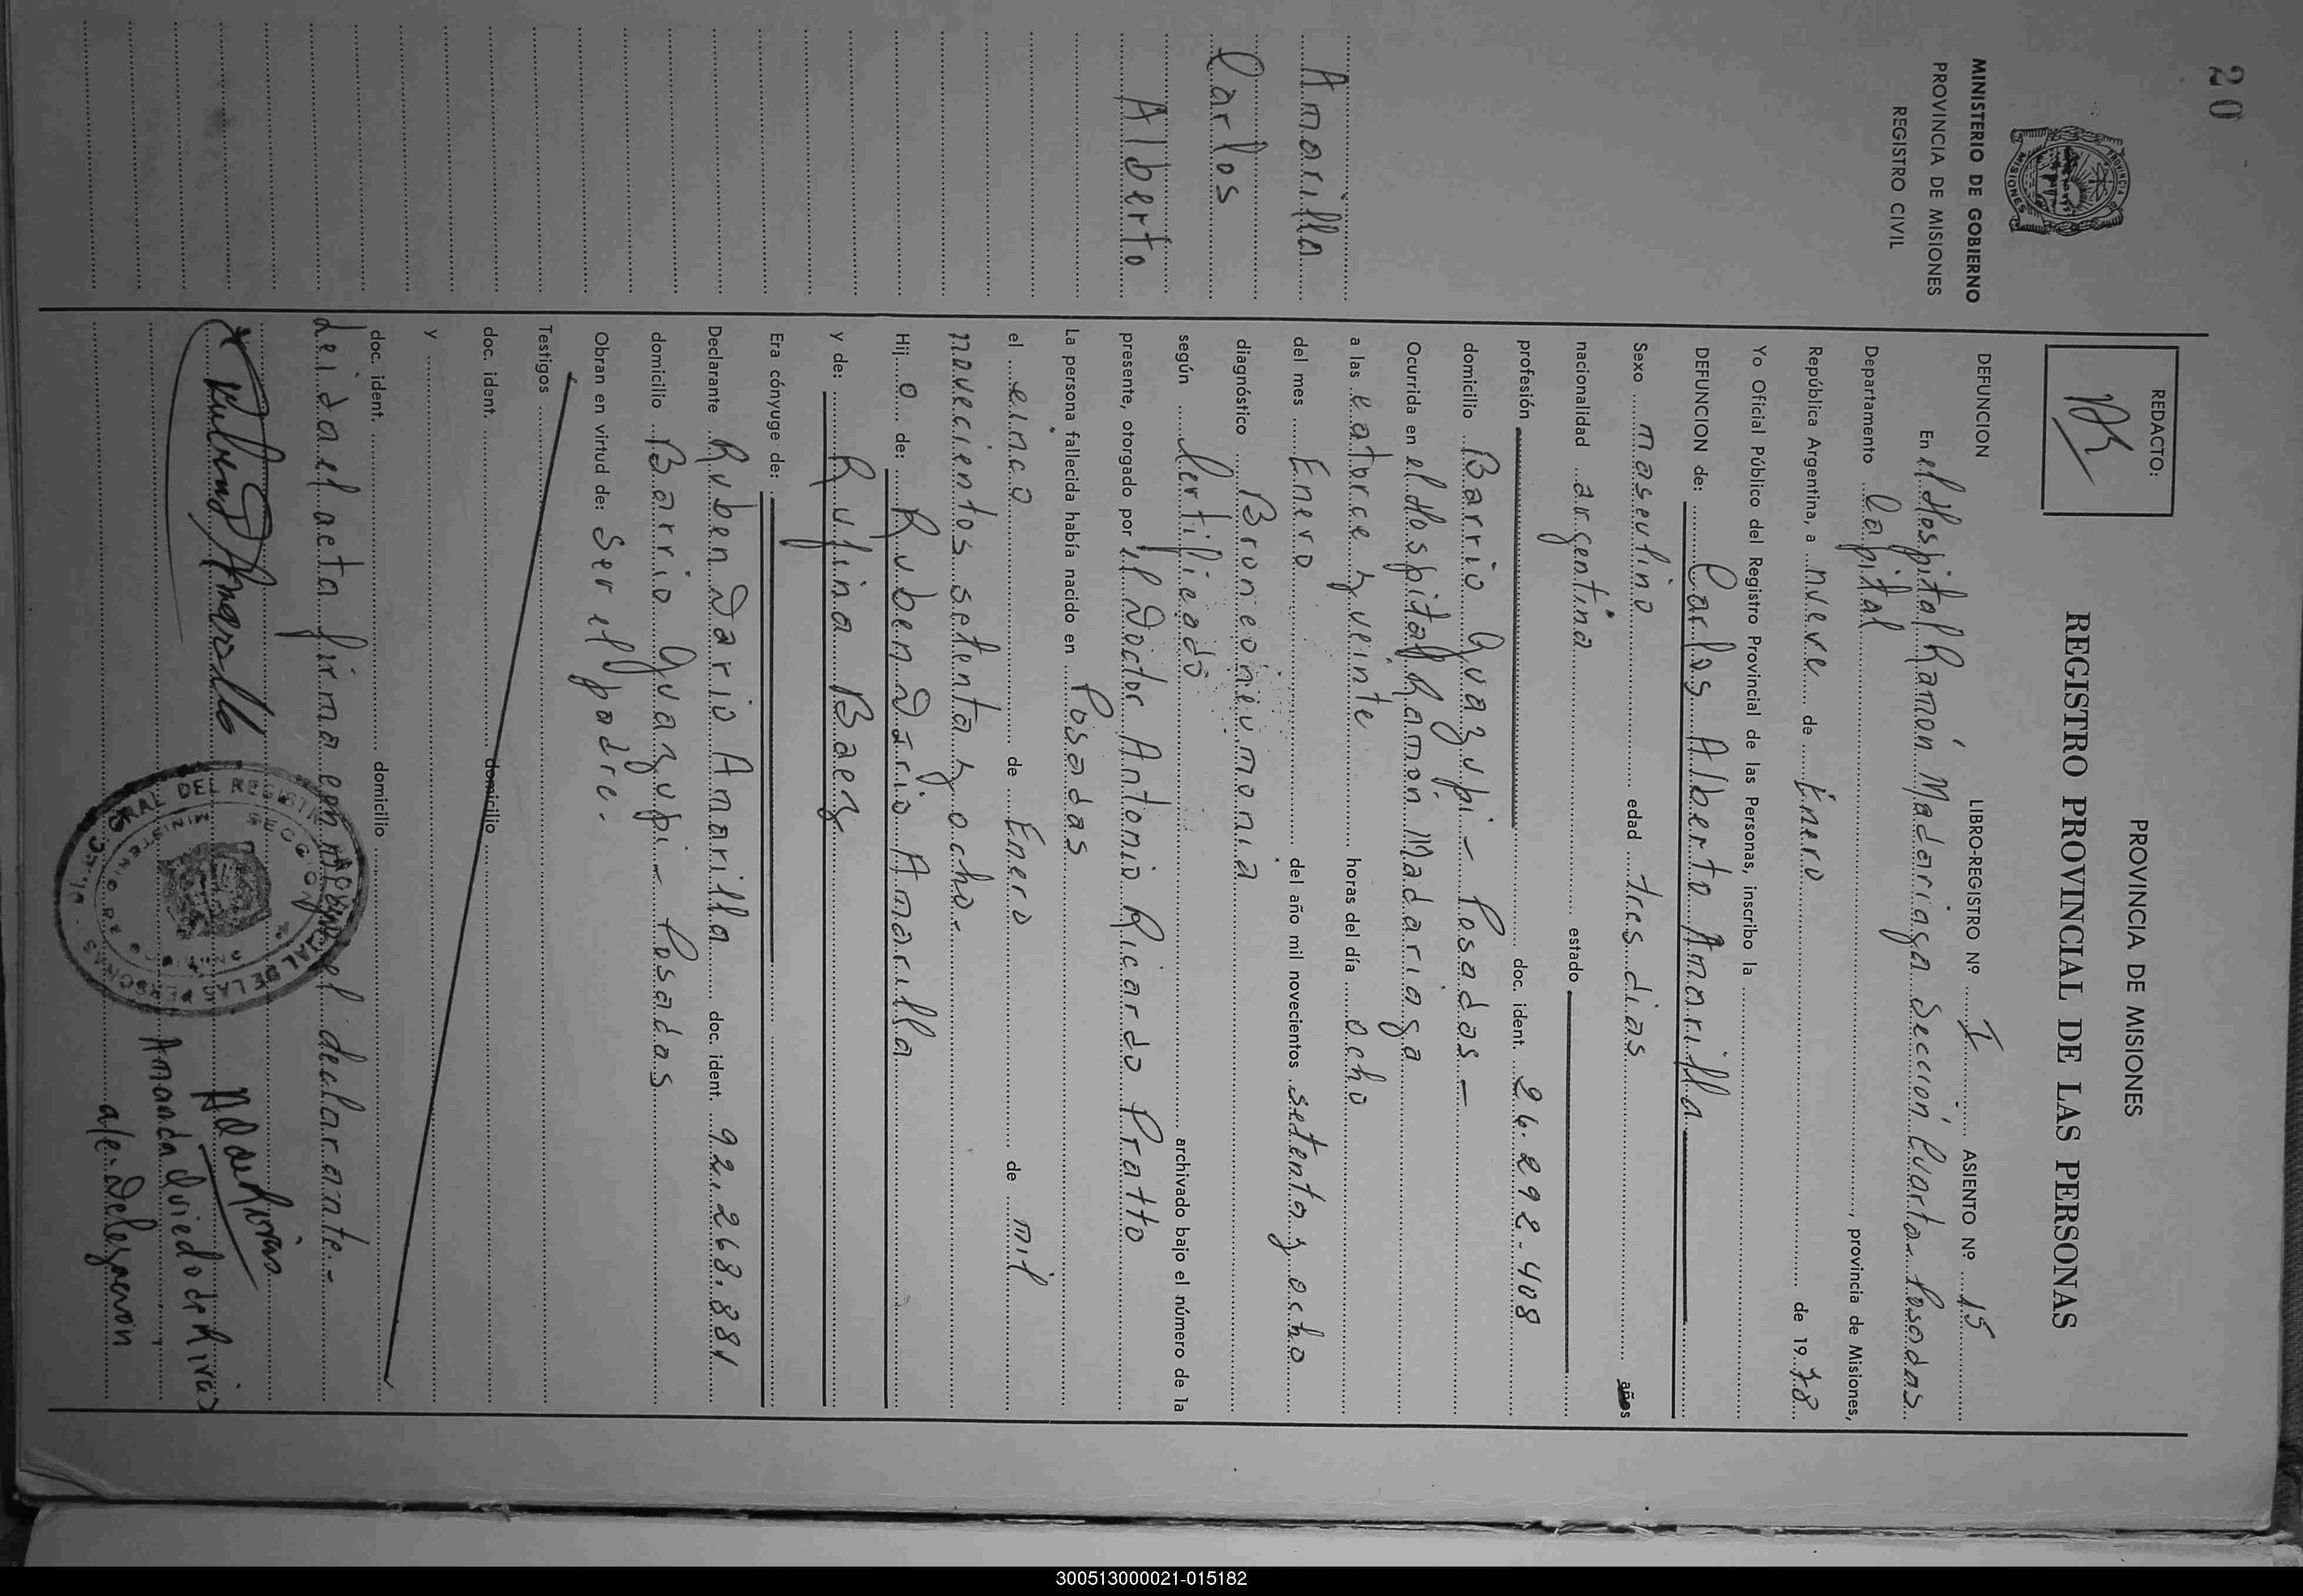 20
MINISTERIO DE GOBIERNO
PROVINCIA DE MISIONES
REGISTRO CIVIL
Amarilla
Carlos
Alberto
PROVINCIA DE MISIONES
REGISTRO PROVINCIAL DE LAS PERSONAS
REDACTO:
DEFUNCION LIBRO-REGISTRO Nº I ASIENTO Nº 15
En el Hospital Ramón Madariaga Sección Cuarta - Posadas
Departamento Capital, provincia de Misiones,
República Argentina, a nueve de Enero de 1978
Yo Oficial Público del Registro Provincial de las Personas, inscribo la
DEFUNCION de: Carlos Alberto Amarilla
Sexo masculino edad tres dias años
nacionalidad argentina estado
profesión doc. ident. 26.292.408
domicilio Barrio Yuazupi - Posadas -
Ocurrida en el Hospital Ramón Madariaga
a las catorce y veinte horas del día ocho
del mes Enero del año mil novecientos setenta y ocho
diagnóstico Bronconeumonia
según Certificado archivado bajo el número de la
presente, otorgado por el Doctor Antonio Ricardo Pratto
La persona fallecida había nacido en Posadas
el cinco de Enero de mil
novecientos setenta y ocho.
Hijo de: Ruben Dario Amarilla
y de: Rufina Baez
Era cónyuge de:
Declarante Ruben Dario Amarilla doc. ident. 92.268.881
domicilio Barrio Yuazupi - Posadas
Obran en virtud de: Ser el padre.
Testigos
doc. ident. domicilio
y
doc. ident. domicilio
Leida el acta firma conmigo el declarante.-
Ruben D Amarilla
A O de Rivas
Amanda Oviedo de Rivas
a/c. Delegacion
300513000021-015182